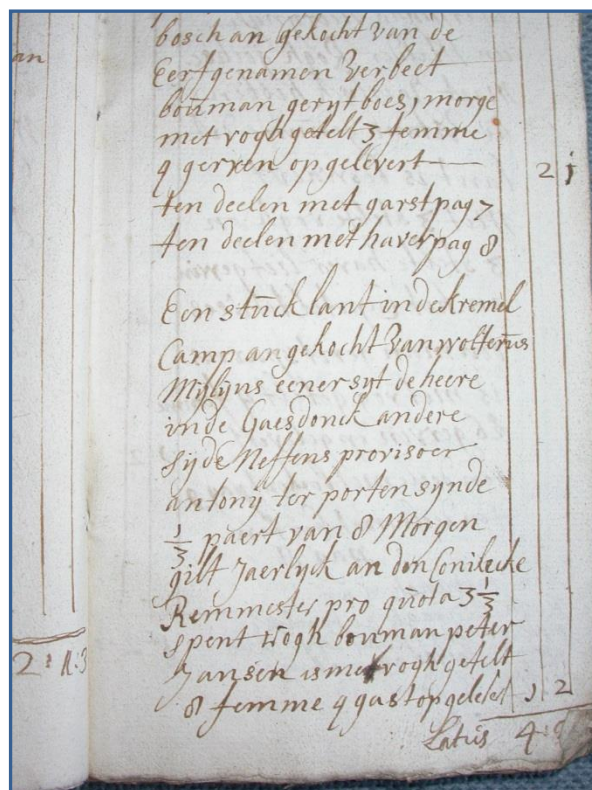 an
bosch an gekocht van de
Eerfgenamen Verbeet
bouman geryt boes, morge
met rogh getelt 3 femme
9 gerven opgelevert — 2 j
ten deelen met garst pag 7
ten deelen met haver pag 8
Een stuck lant in de kremel
Camp angekocht van wolterus
Mylyns eener syt de heere
in de Gaesdonck andere
syde Neffens provisoer
antonij ter porten synde
1/3 paert van 8 Morgen
gilt Jaerlyck an den
Remmester pro quota 3 1/3
spent rogh bouman peter
Jansen is met rogh getelt
8 femme 9 gast 1 2
Latus 4:
2: